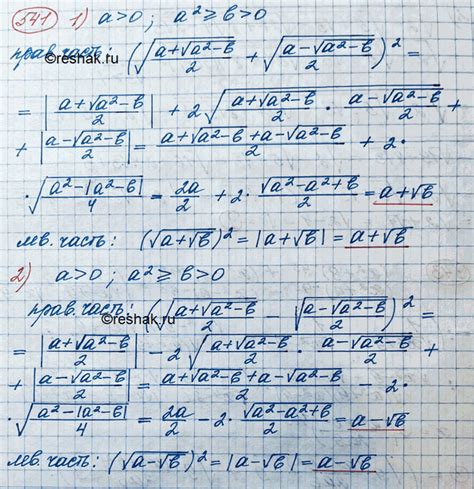 541 1) a>0; a²≥b>0
прав.часть: (√((a+√(a²-b))/2) + √((a-√(a²-b))/2))² =
©reshak.ru
= |(a+√(a²-b))/2| + 2√((a+√(a²-b))/2 · (a-√(a²-b))/2) +
+ |(a-√(a²-b))/2| = (a+√(a²-b)+a-√(a²-b))/2 + 2·
·√((a²-|a²-b|)/4) = 2a/2 + 2·√(a²-a²+b)/2 = a+√b
лев.часть: (√(a+√b))² = |a+√b| = a+√b
2) a>0; a²≥b>0
прав.часть: (√((a+√(a²-b))/2) - √((a-√(a²-b))/2))² =
©reshak.ru
= |(a+√(a²-b))/2| - 2√((a+√(a²-b))/2 · (a-√(a²-b))/2) +
+ |(a-√(a²-b))/2| = (a+√(a²-b)+a-√(a²-b))/2 - 2·
·√((a²-|a²-b|)/4) = 2a/2 - 2·√(a²-a²+b)/2 = a-√b
лев.часть: (√(a-√b))² = |a-√b| = a-√b